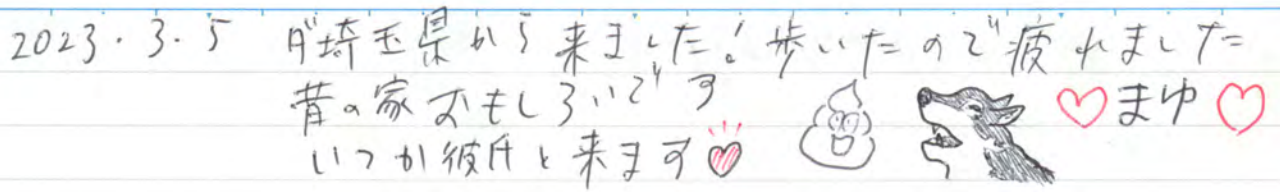 2023.3.5 ダ埼玉県から来ました!歩いたので疲れました
昔の家おもしろいです
♡まゆ♡
いつか彼氏と来ます♡